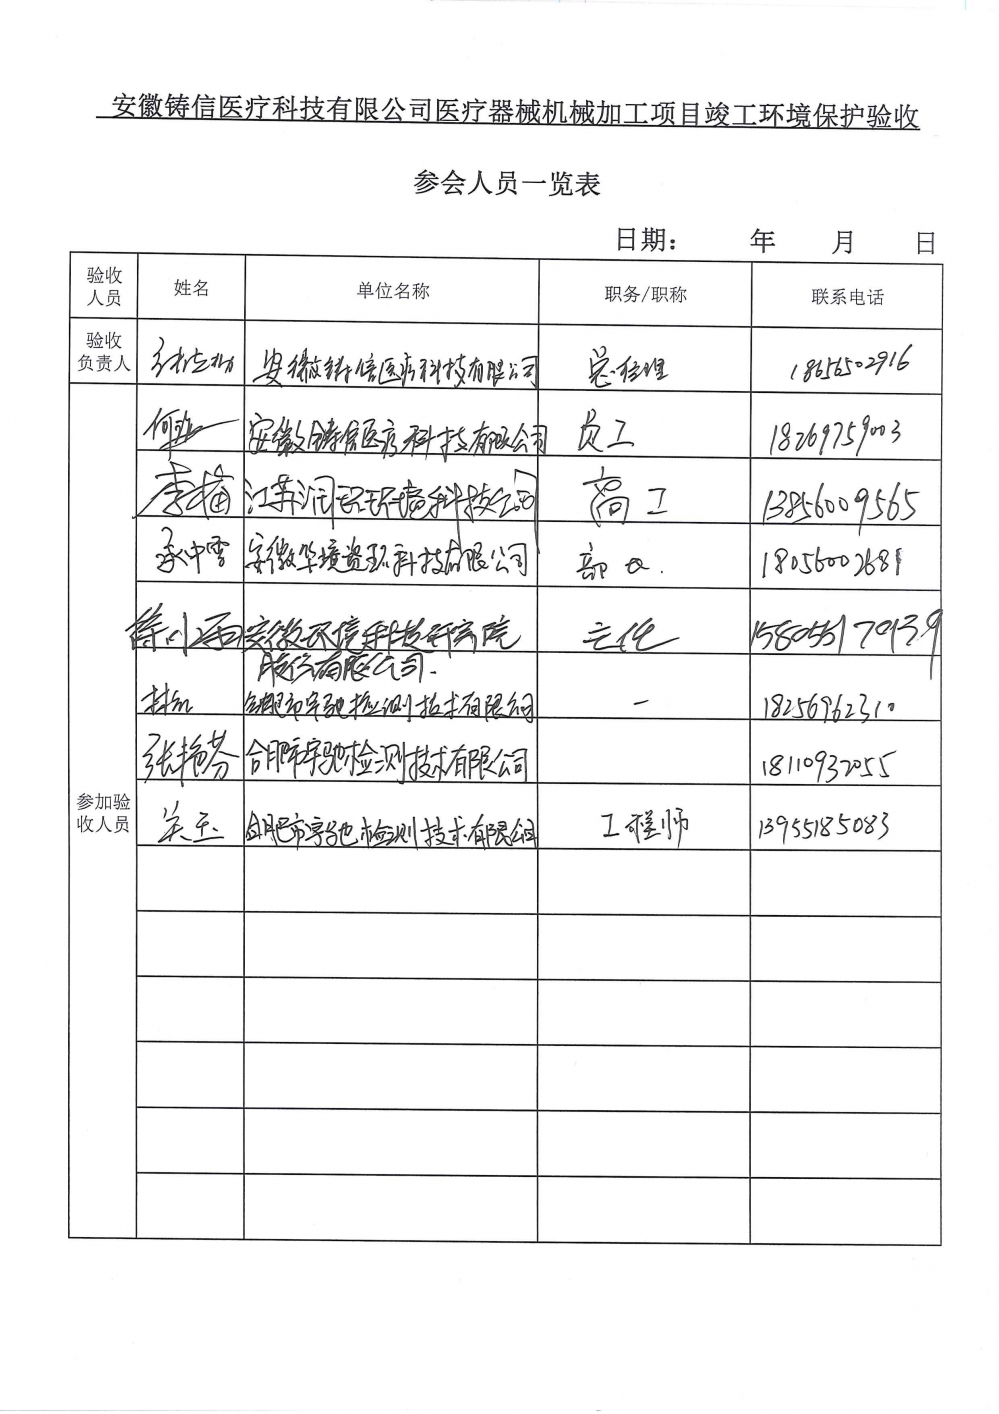 安徽铸信医疗科技有限公司医疗器械机械加工项目竣工环境保护验收
参会人员一览表
日期： 年 月 日
验收人员 姓名 单位名称 职务/职称 联系电话
验收负责人 安徽铸信医疗科技有限公司 总经理 18656502916
何 安徽铸信医疗科技有限公司 员工 18269759003
李 江苏润环环境科技公司 高工 13856009565
安徽华境资环科技有限公司 部长. 18056002681
安徽环境科技研究院 主任
股份有限公司.
合肥市宇驰检测技术有限公司 — 18256962310
张艳芬 合肥市宇驰检测技术有限公司 18110932055
参加验收人员 吴玉 合肥市宇驰检测技术有限公司 工程师 13955185083